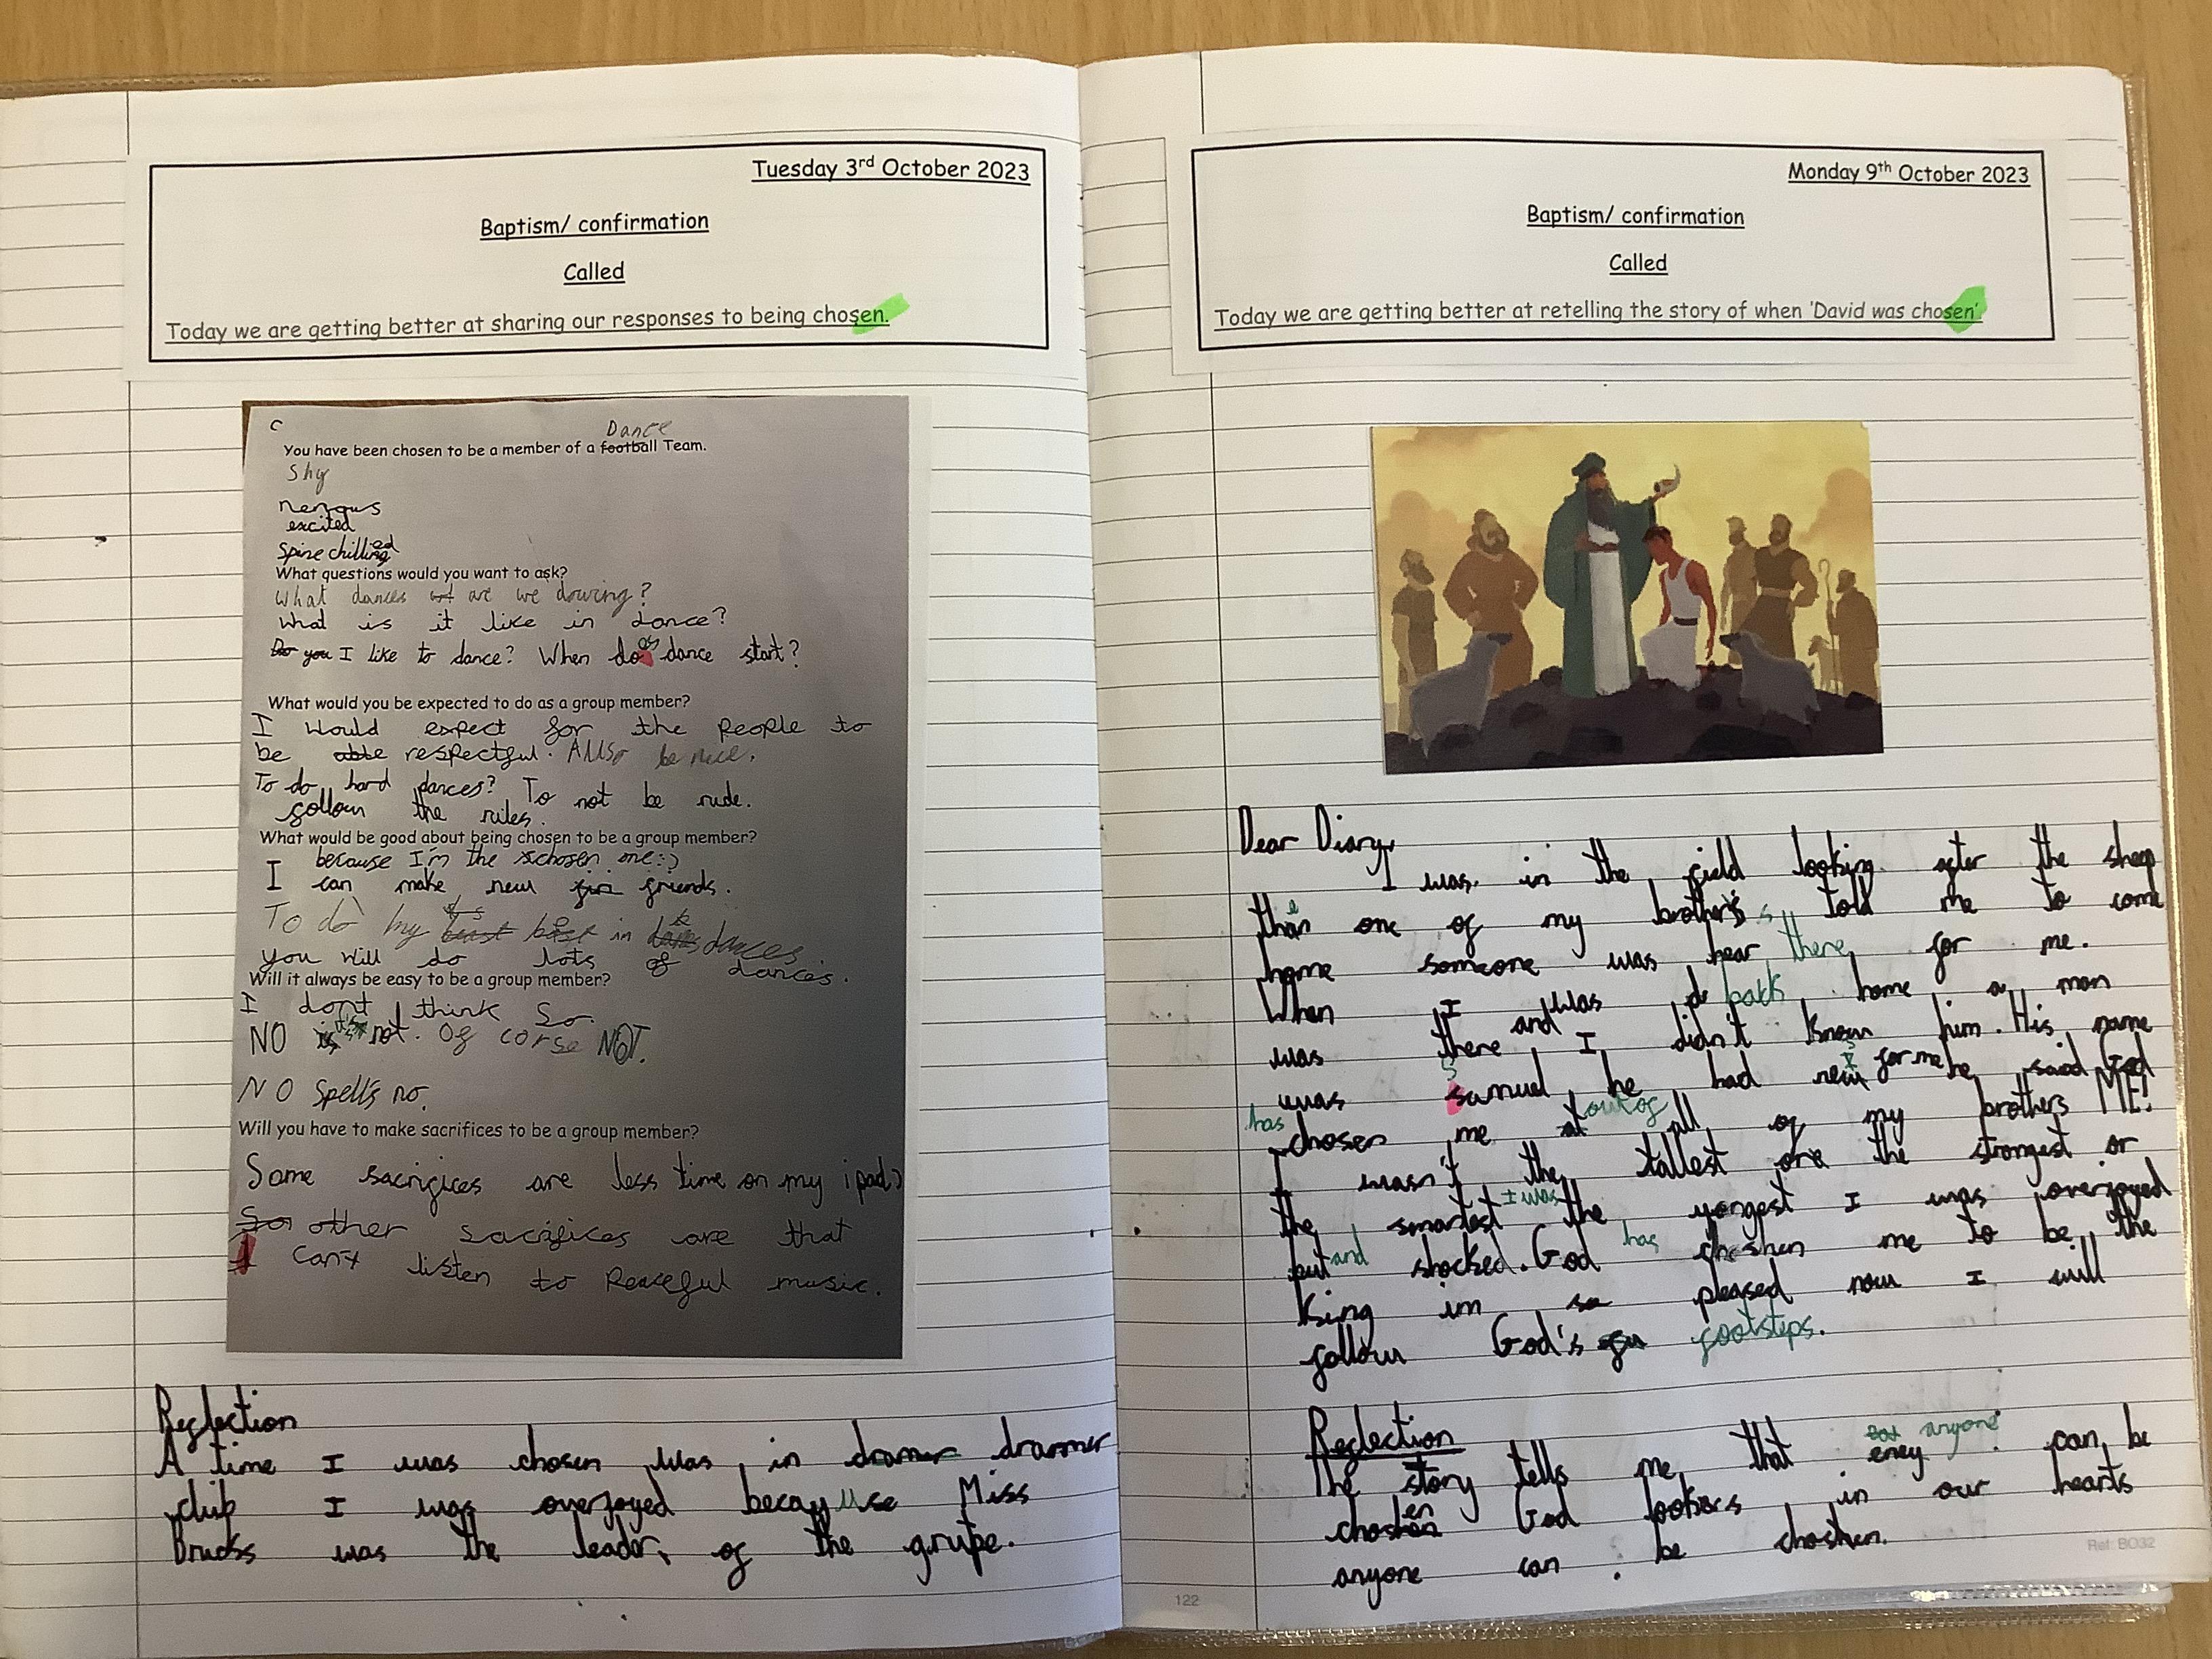 Tuesday 3rd October 2023
Baptism/ confirmation
Called
Today we are getting better at sharing our responses to being chosen.
C
Dance
You have been chosen to be a member of a football Team.
Shy
nervous
excited
Spine chilling ed
What questions would you want to ask?
What dances are we dowing?
What is it like in dance?
Do you I like to dance? When does dance start?
What would you be expected to do as a group member?
I Would expect for the People to
be able respectful. Allso be nice.
To do hard dances? To not be rude.
follow the rules.
What would be good about being chosen to be a group member?
because I'm the chosen one:)
I can make new friends.
To do my best in dances
you will do lots of dances.
Will it always be easy to be a group member?
I dont think So
NO it's not. Of corse NOT.
NO Spells no.
Will you have to make sacrifices to be a group member?
Some sacrifices are less time on my ipad
So other sacrifices are that
I cant listen to Peaceful music.
Reflection
A time I was chosen was in dramer drammer
club I was overjoyed because Miss
was the leader of the grupe.
Monday 9th October 2023
Baptism/ confirmation
Called
Today we are getting better at retelling the story of when 'David was chosen'
Dear Diary,
I was in the field looking after the sheep
then one of my brothers told me to come
home someone was hear there for me.
When I was back home a man
was there and I didn't know him. His name
was Samuel he had news for me he said God
has chosen me out of all of my brothers ME!
I wasn't the tallest ore the strongest or
the smartest I was the yongest I was overjoyed
but and shocked. God has choshen me to be the
King im so pleased now I will
follow God's footsteps.
Reflection
The story tells me that eney anyone can be
choshen en God lookes in our hearts
anyone can be choshen.
122
Ref: BO32